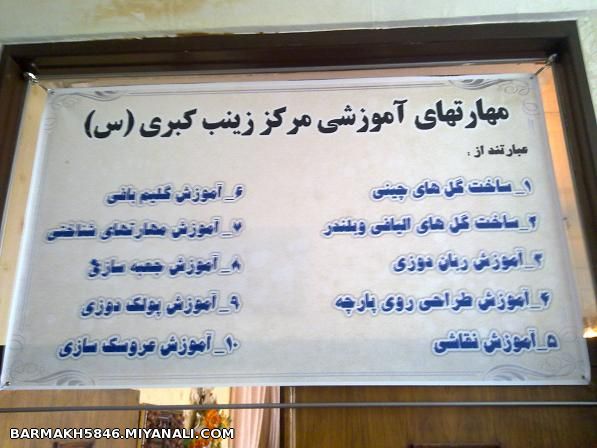 مهارتهای آموزشی مرکز زینب کبری (س)
عبارتند از :
۱_ ساخت گل های چینی
۲_ ساخت گل های الیافی وبلندر
۳_ آموزش ربان دوزی
۴_ آموزش طراحی روی پارچه
۵_ آموزش نقاشی
۶_ آموزش گلیم بافی
۷_ آموزش مهارتهای شناختی
۸_ آموزش جعبه سازی
۹_ آموزش پولک دوزی
۱۰_ آموزش عروسک سازی
BARMAKH5846.MIYANALI.COM